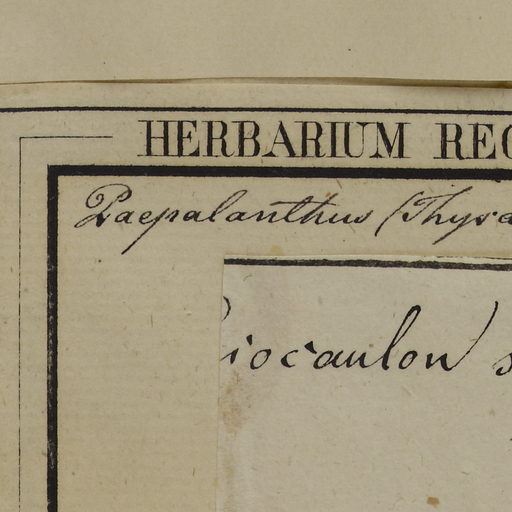 HERBARIUM REG
Paepalanthus (Thysa
riocaulon s